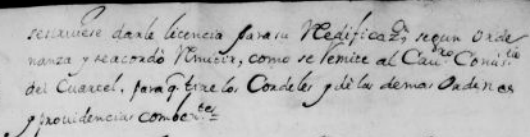 se sirviese darle licencia para su Redificaz.ⁿ segun Orde
nanza y se acordó Rmitir, como se Remite al Cav.ro Comis.rio
del Cuartel, para q.e tire los Cordeles y dé las demas Ordenes
y providencias combe.tes